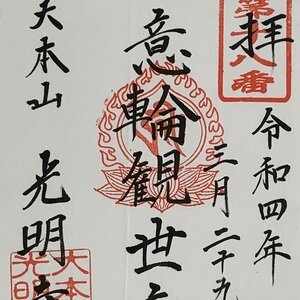 第十八番
拝
令和四年
三月二十九
意輪観世音
大本山 光明寺
大本
光明